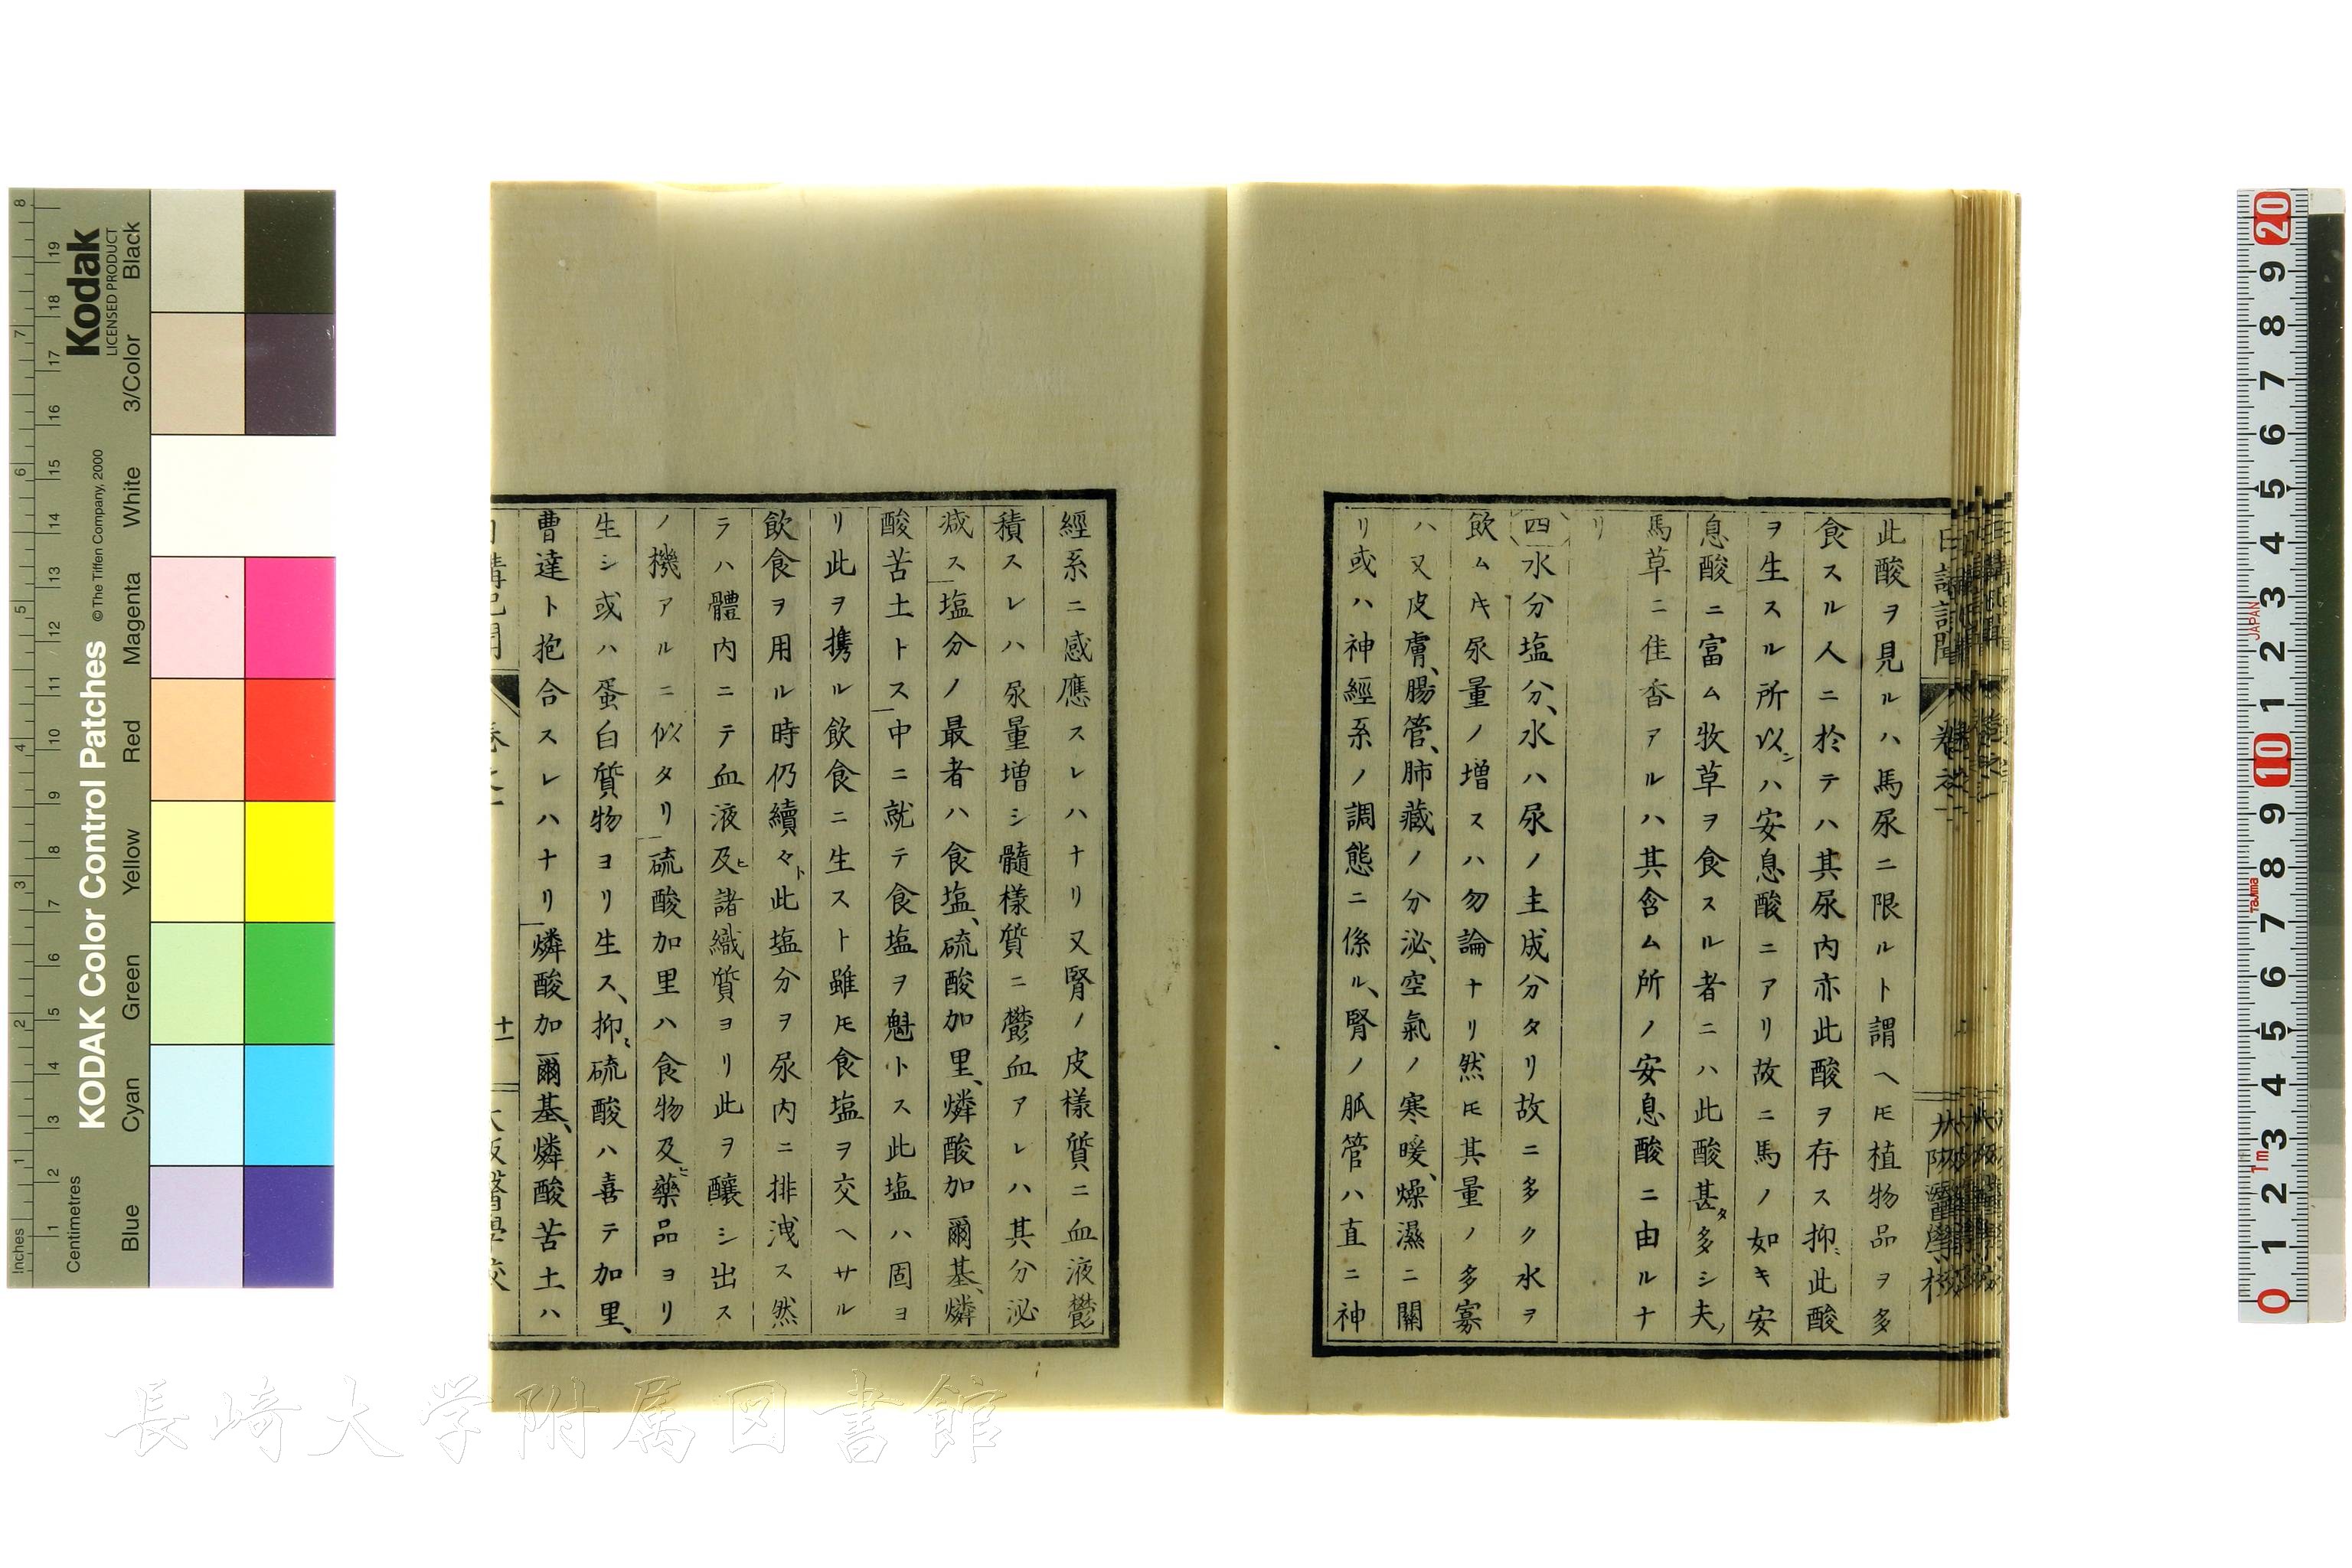 此酸ヲ見ルハ馬尿ニ限ルト謂ヘ𪜈植物品ヲ多
食スル人ニ於テハ其尿内亦此酸ヲ存ス抑〻此酸
ヲ生スル所以ンハ安息酸ニアリ故ニ馬ノ如キ安
息酸ニ富ム牧草ヲ食スル者ニハ此酸甚タ多シ夫ノ
馬草ニ佳香アルハ其含ム所ノ安息酸ニ由ルナ
リ
四 水分塩分、水ハ尿ノ主成分タリ故ニ多ク水ヲ
飲ムキ尿量ノ増スハ勿論ナリ然𪜈其量ノ多寡
ハ又皮膚、腸管、肺藏ノ分泌、空氣ノ寒暖、燥濕ニ關
リ或ハ神經系ノ調態ニ係ル、腎ノ脈管ハ直ニ神
經系ニ感應スレハナリ又腎ノ皮樣質ニ血液鬱
積スレハ尿量増シ髓樣質ニ鬱血アレハ其分泌
減ス塩分ノ最者ハ食塩、硫酸加里、燐酸加爾基、燐
酸苦土トス中ニ就テ食塩ヲ魁トス此塩ハ固ヨ
リ此ヲ携ル飲食ニ生スト雖𪜈食塩ヲ交ヘサル
飲食ヲ用ル時仍續々ト此塩分ヲ尿内ニ排洩ス然
ラハ體内ニテ血液及ヒ諸織質ヨリ此ヲ釀シ出ス
ノ機アルニ似タリ硫酸加里ハ食物及ヒ藥品ヨリ
生シ或ハ蛋白質物ヨリ生ス、抑〻硫酸ハ喜テ加里、
曹達ト抱合スレハナリ燐酸加爾基、燐酸苦土ハ
十一
Kodak
LICENSED PRODUCT
KODAK Color Control Patches
© The Tiffen Company, 2000
Inches
Centimetres
Blue Cyan Green Yellow Red Magenta White 3/Color Black
JAPAN
Tajima
1m
長崎大学附属図書館